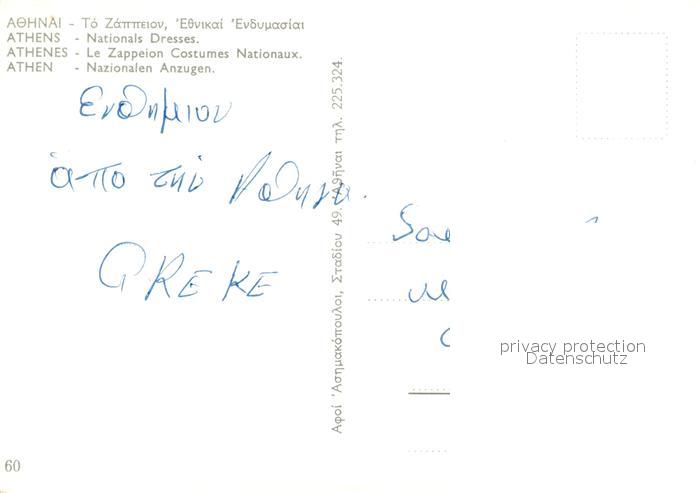 ΑΘΗΝΑΙ - Τό Ζάππειον, Ἐθνικαί Ἐνδυμασίαι
ATHENS - Nationals Dresses.
ATHENES - Le Zappeion Costumes Nationaux.
ATHEN - Nazionalen Anzugen.
Ενθημιον
ἀπο την
GREKE
Αφοί Ἀσημακόπουλοι, Σταδίου 49. Ἀθῆναι τηλ. 225.324.
privacy protection
Datenschutz
60